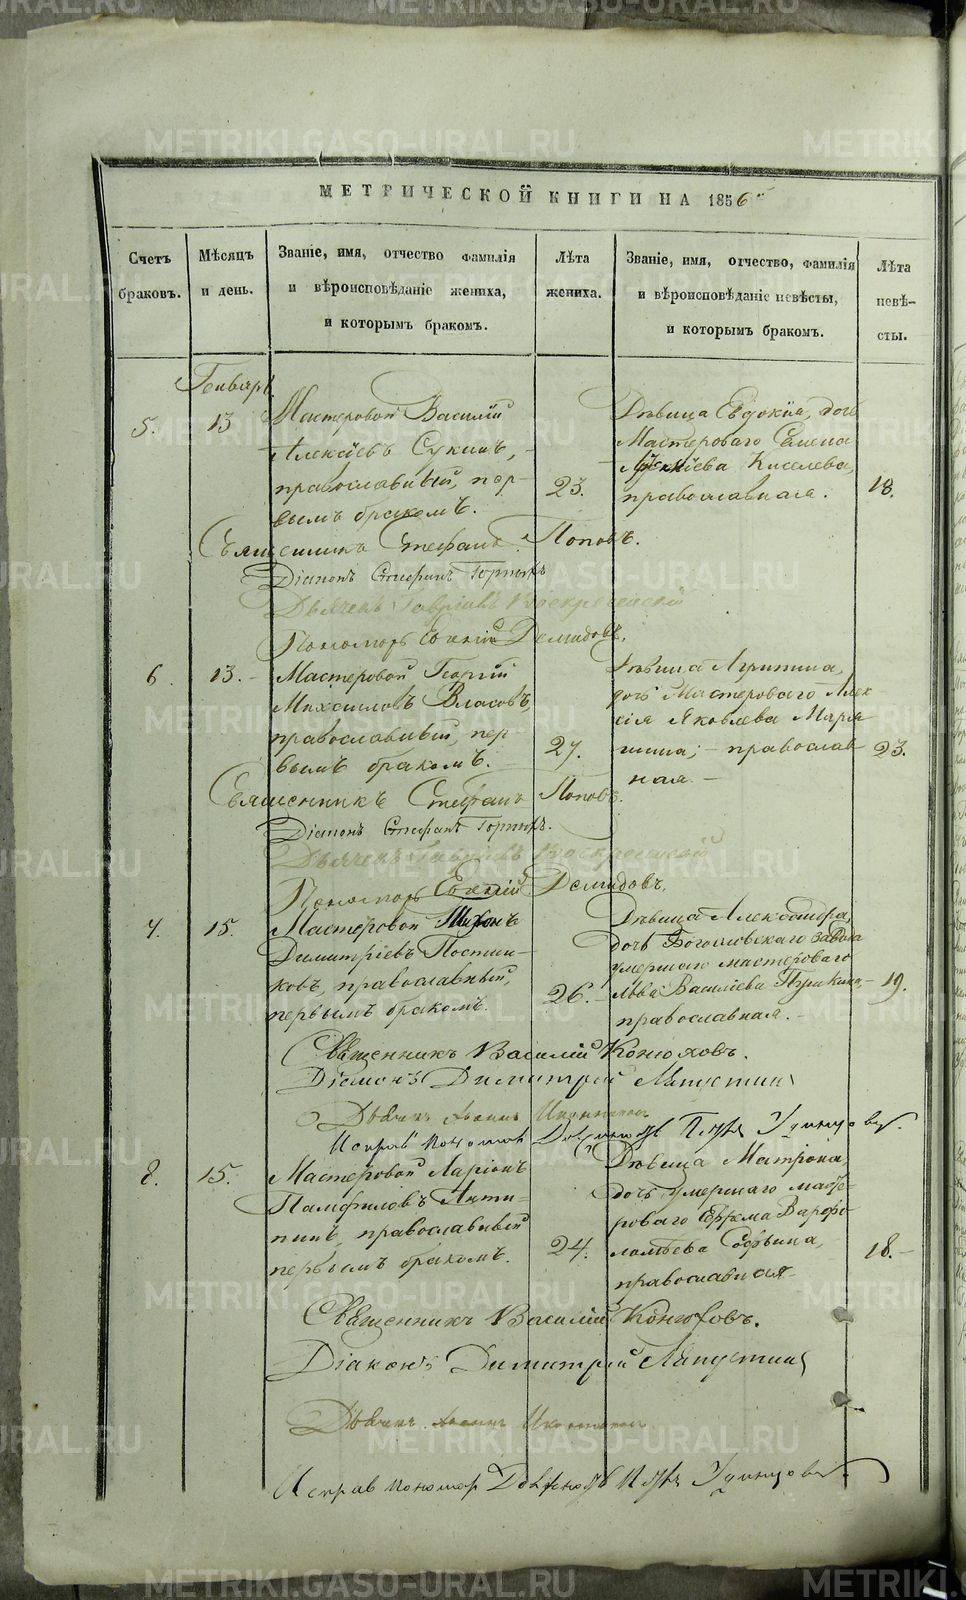 МЕТРИЧЕСКОЙ КНИГИ НА 1856
Счетъ браковъ.
Мѣсяцъ и день.
Званіе, имя, отчество фамилія
и вѣроисповѣданіе жениха,
и которымъ бракомъ.
Лѣта жениха.
Званіе, имя, отчество, фамилія
и вѣроисповѣданіе невѣсты,
и которымъ бракомъ.
Лѣта невѣ-
сты.
Генварь
5. 13 Мастеровой Василій
Алексѣевъ Сукинъ,
православный, пер-
вымъ бракомъ.
23.
Дѣвица Евдокія, дочь
Мастероваго Семена
Киселева,
православная.
18.
Священникъ Стефанъ Поповъ.
Діаконъ Стефанъ
Дьячекъ Гавріилъ Воскресенскій
Пономарь Демидовъ.
6. 13. Мастеровой Георгій
Михайловъ Власовъ,
православный, пер
вымъ бракомъ.
27.
Дѣвица Ирина,
дочь Мастероваго Алек
сія Яковлева Маря
нина, православ
ная.
23.
Священникъ Стефанъ Поповъ.
Діаконъ Стефанъ
Дьячекъ Гавріилъ Воскресенскій
Пономарь Демидовъ.
7. 15. Мастеровой
Димитріевъ Постни-
ковъ, православный,
первымъ бракомъ.
26.
Дѣвица Александра,
дочь Богословскаго завода
умершаго мастероваго
Льва Васильева
православная.
19.
Священникъ Василій Конюховъ.
Діаконъ Димитрій Ляпустинъ
Дьячекъ
Исправ пономар
8. 15. Мастеровой Ларіонъ
Памфиловъ Анти-
пинъ, православный
первымъ бракомъ.
24.
Дѣвица Матрона,
дочь умершаго масте-
роваго Ефрема Варфо-
ломѣева
православная
18.
Священникъ Василій Конюховъ.
Діаконъ Димитрій Ляпустинъ
Дьячекъ
Исправ пономар
METRIKI.GASO-URAL.RU